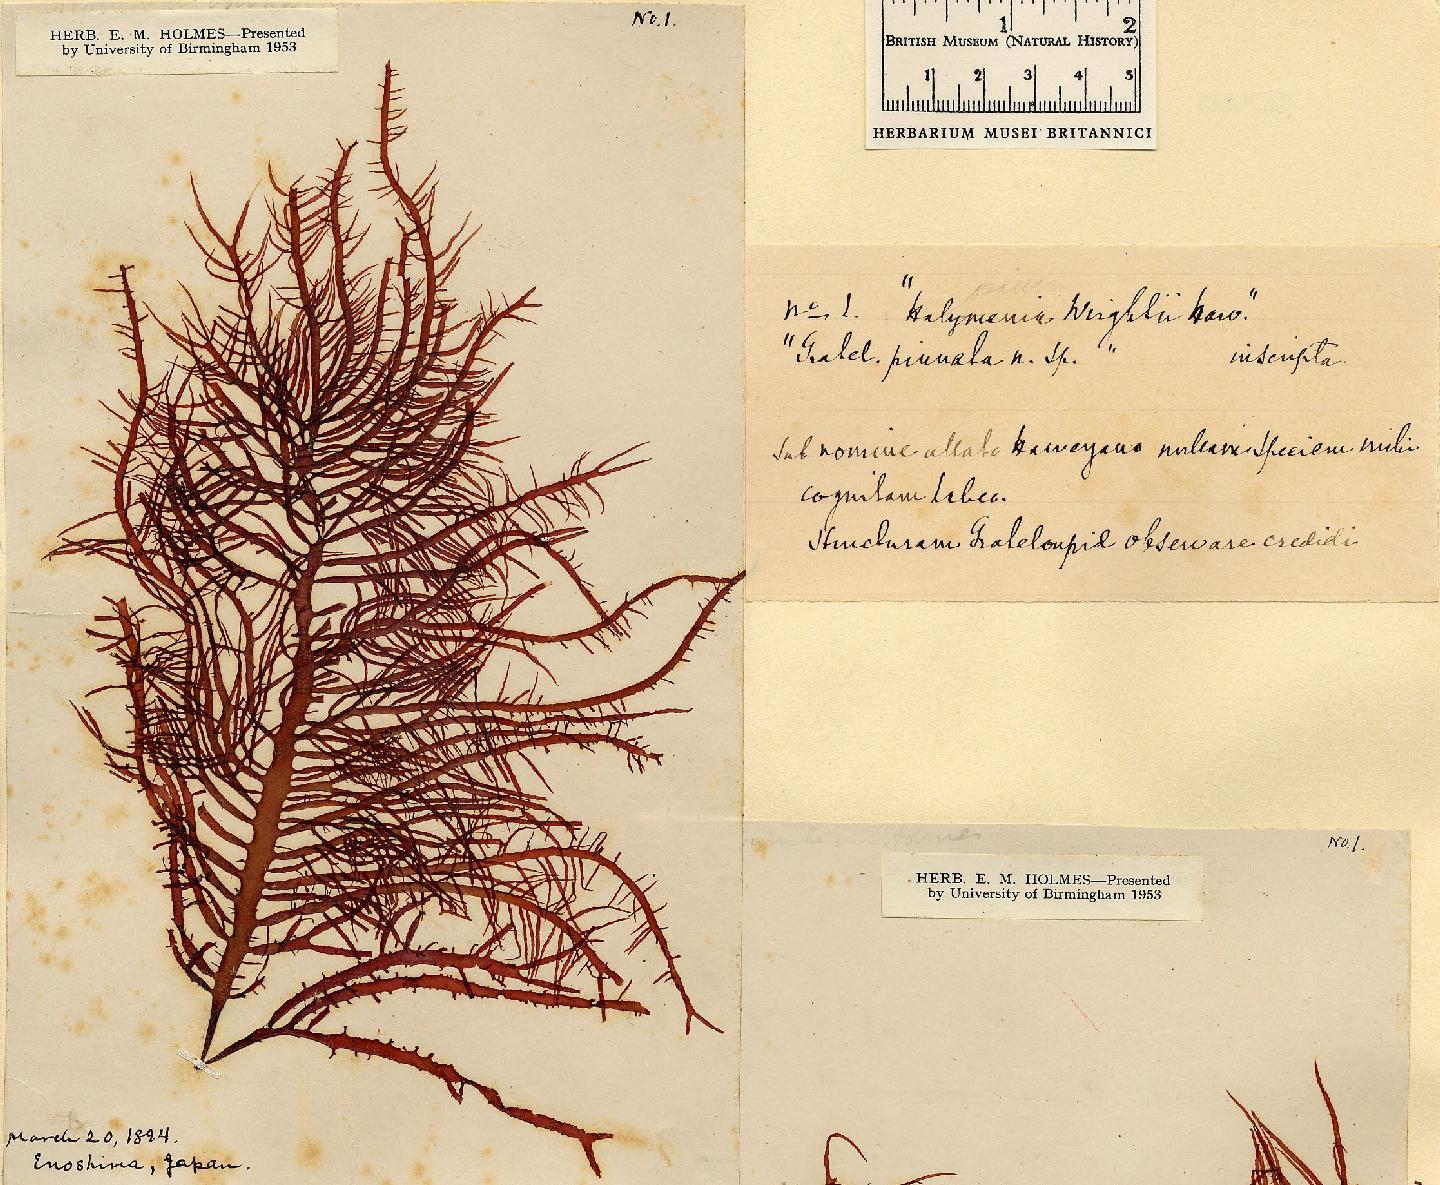 HERB. E. M. HOLMES—Presented
by University of Birmingham 1953
No. 1.
March 20, 1894.
Enoshima, Japan.
1 2
BRITISH MUSEUM (NATURAL HISTORY)
1 2 3 4 5
HERBARIUM MUSEI BRITANNICI
No. 1. "Halymenia Wrightii Harv."
"Gratel. pinnata n. sp." inscripta
Sub nomine allato Harveyano nullam speciem mihi
cognitam habeo.
Structuram Grateloupiæ observare credidi
No. 1.
HERB. E. M. HOLMES—Presented
by University of Birmingham 1953